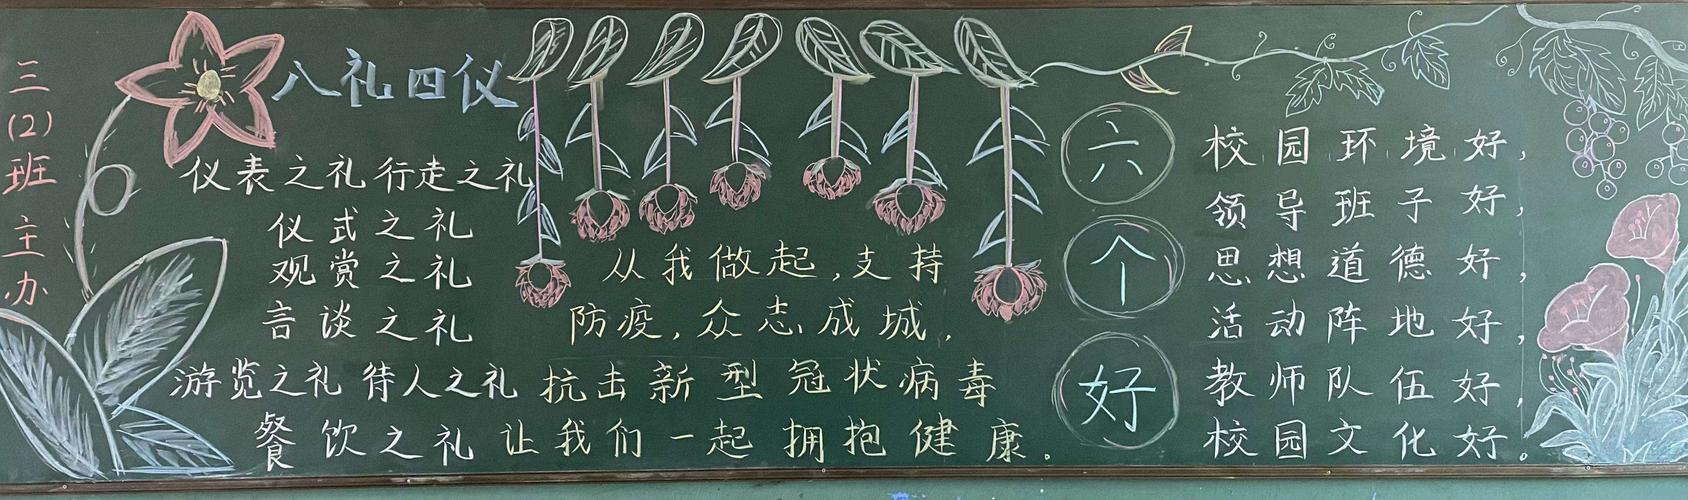 三(2)班主办
八礼四仪
仪表之礼 行走之礼
仪式之礼
观赏之礼
言谈之礼
游览之礼 待人之礼
餐饮之礼
从我做起,支持
防疫,众志成城,
抗击新型冠状病毒
让我们一起拥抱健康。
六个好
校园环境好,
领导班子好,
思想道德好,
活动阵地好,
教师队伍好,
校园文化好。